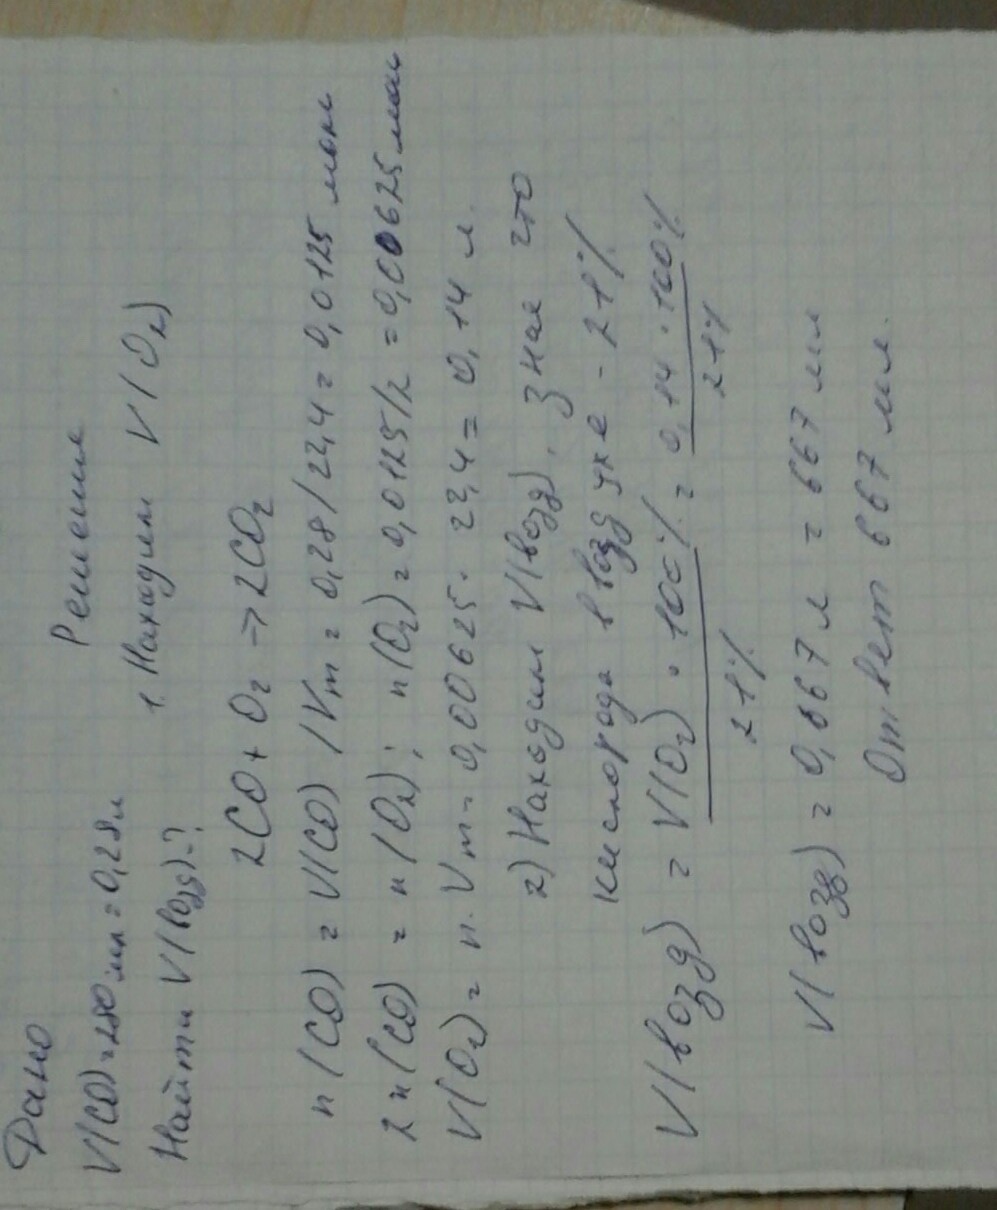 Дано Решение
V(CO)=280мл=0,28л 1. Находим V(O₂)
Найти V(возд)-?
2CO + O₂ → 2CO₂
n(CO) = V(CO)/Vm = 0,28/22,4 = 0,0125 моль
2n(CO) = n(O₂); n(O₂) = 0,0125/2 = 0,00625 моль
V(O₂) = n·Vm = 0,00625·22,4 = 0,14 л.
2) Находим V(возд), зная что
кислорода в воздухе - 21%
V(возд) = V(O₂)·100% / 21% = 0,14·100% / 21%
V(возд) = 0,667 л = 667 мл
Ответ 667 мл.